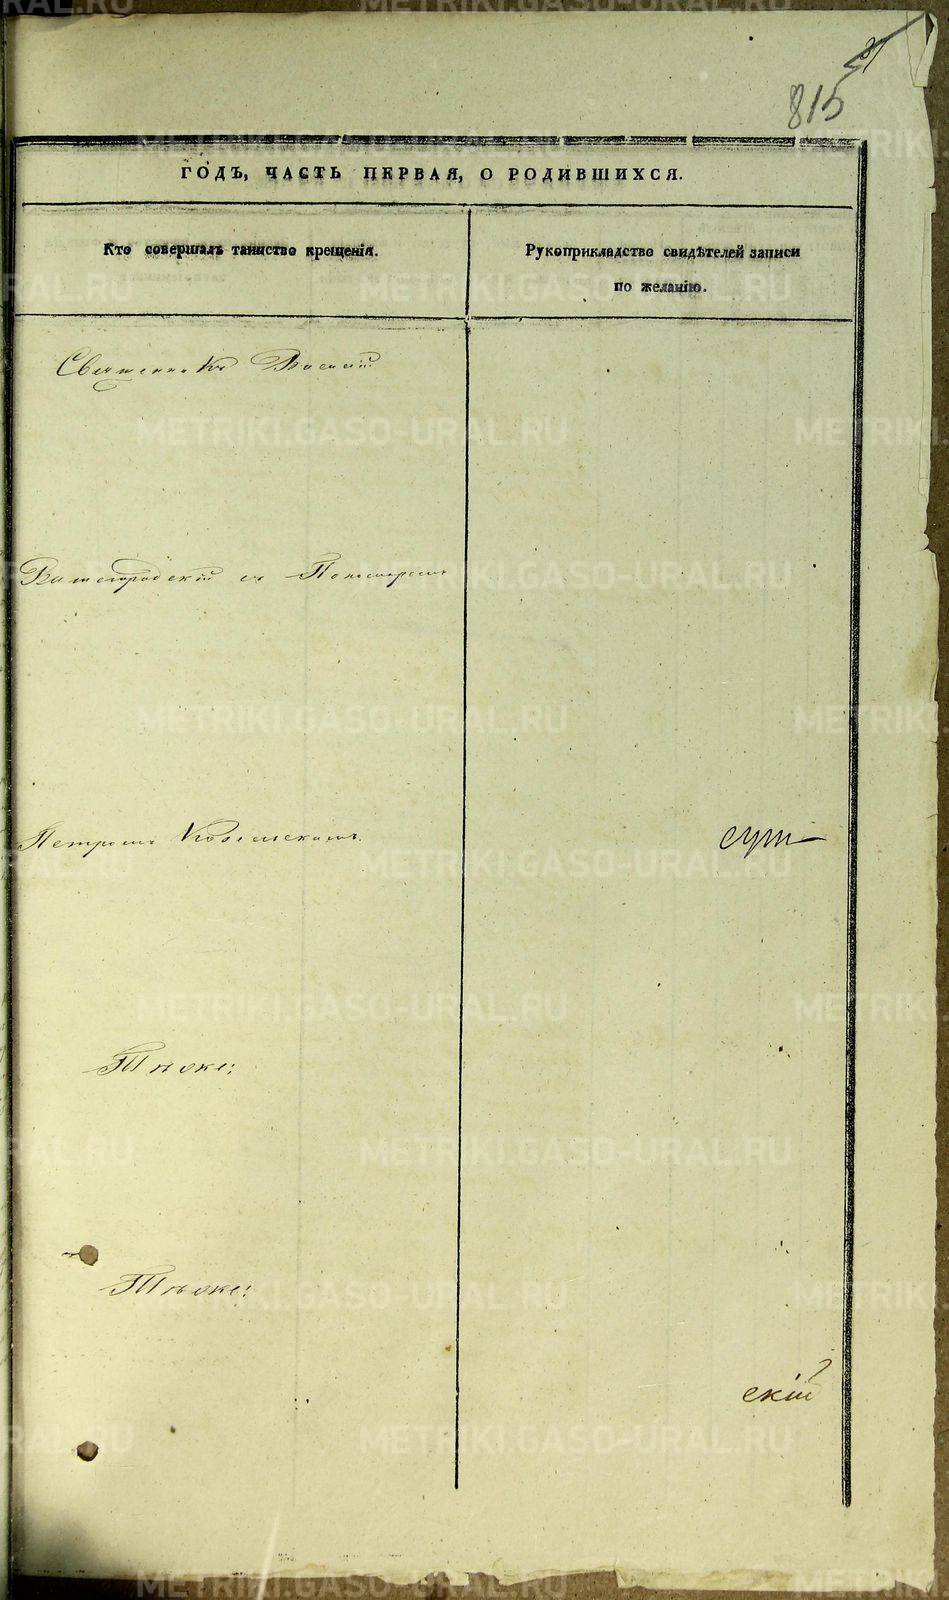 815
ГОДЪ, ЧАСТЬ ПЕРВАЯ, О РОДИВШИХСЯ.
Кто совершалъ таинство крещенія.
Рукоприкладство свидѣтелей записи
по желанію.
Священникъ Василій
съ Пономаремъ
Петромъ
Тѣже:
Тѣже:
скій
METRIKI.GASO-URAL.RU